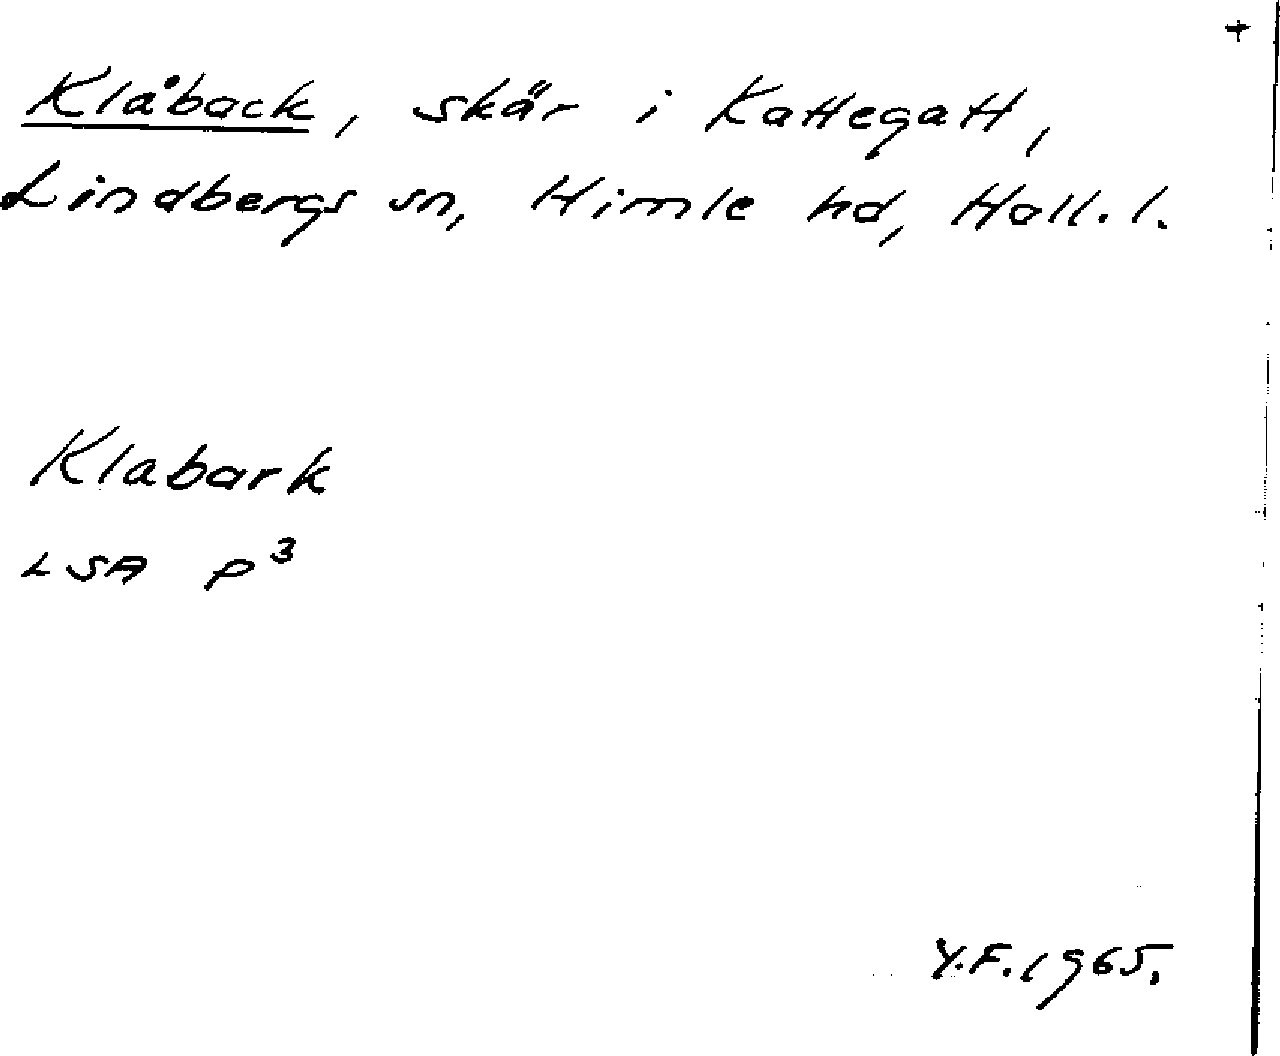 +
Klåback, skär i Kattegatt,
Lindbergs sn, Himle hd, Hall. l.
Klabark
LSA p³
Y.F. 1965.